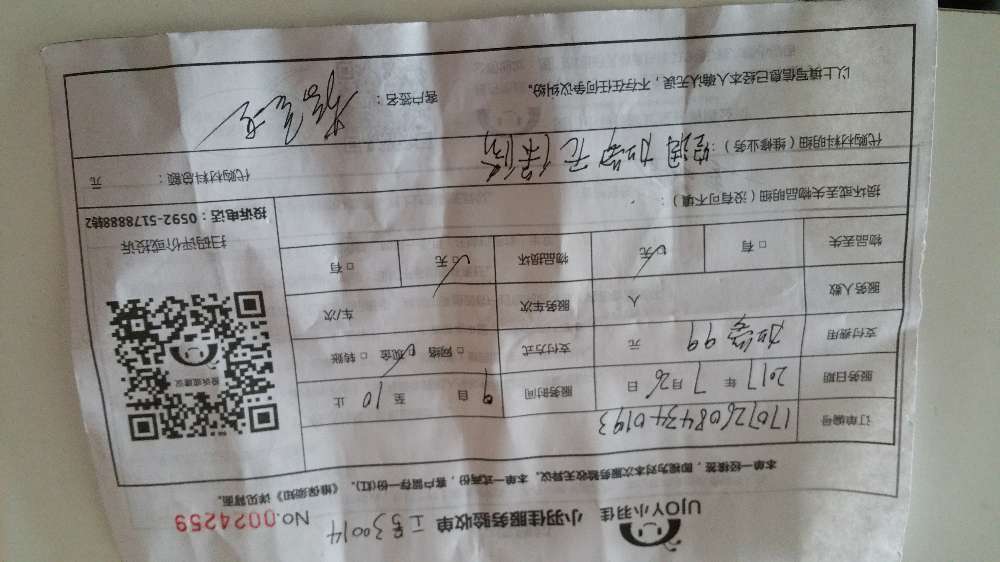 UJOY小羽佳 小羽佳服务验收单 工号30014 No.0024259
本单一经接签，即视为对本次服务验收无异议。本单一式两份，客户留存一份(红)。《维保须知》详见背面。
订单编号 170726084340193
服务日期 2017 年 7 月 26 日 服务时间 9 自 至 10 止
支付费用 加氟 99 元 支付方式 □ 网络 现金 □ 转账
服务人数 人 服务车次 车/次
物品丢失 □ 有 □ 无 物品损坏 □ 无 □ 有
投诉或建议
扫码评价或投诉
投诉电话：0592-5178888转2
损坏或丢失物品明细（没有可不填）：
代购材料明细（维修业务）： 空调加氟无保修
代购材料总额： 元
以上填写信息已经本人确认无误，不存在任何争议纠纷。 客户签名：